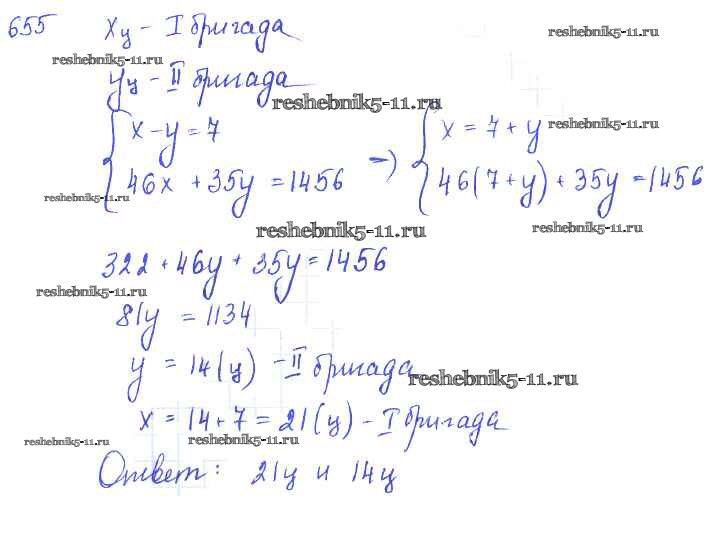 655 xц - I бригада
reshebnik5-11.ru
reshebnik5-11.ru
yц - II бригада
reshebnik5-11.ru
{ x - y = 7 { x = 7 + y
reshebnik5-11.ru
{ 46x + 35y = 1456 => { 46(7+y) + 35y = 1456
reshebnik5-11.ru
reshebnik5-11.ru reshebnik5-11.ru
322 + 46y + 35y = 1456
reshebnik5-11.ru
81y = 1134
y = 14(ц) - II бригада
reshebnik5-11.ru
x = 14 + 7 = 21(ц) - I бригада
reshebnik5-11.ru reshebnik5-11.ru
Ответ: 21ц и 14ц